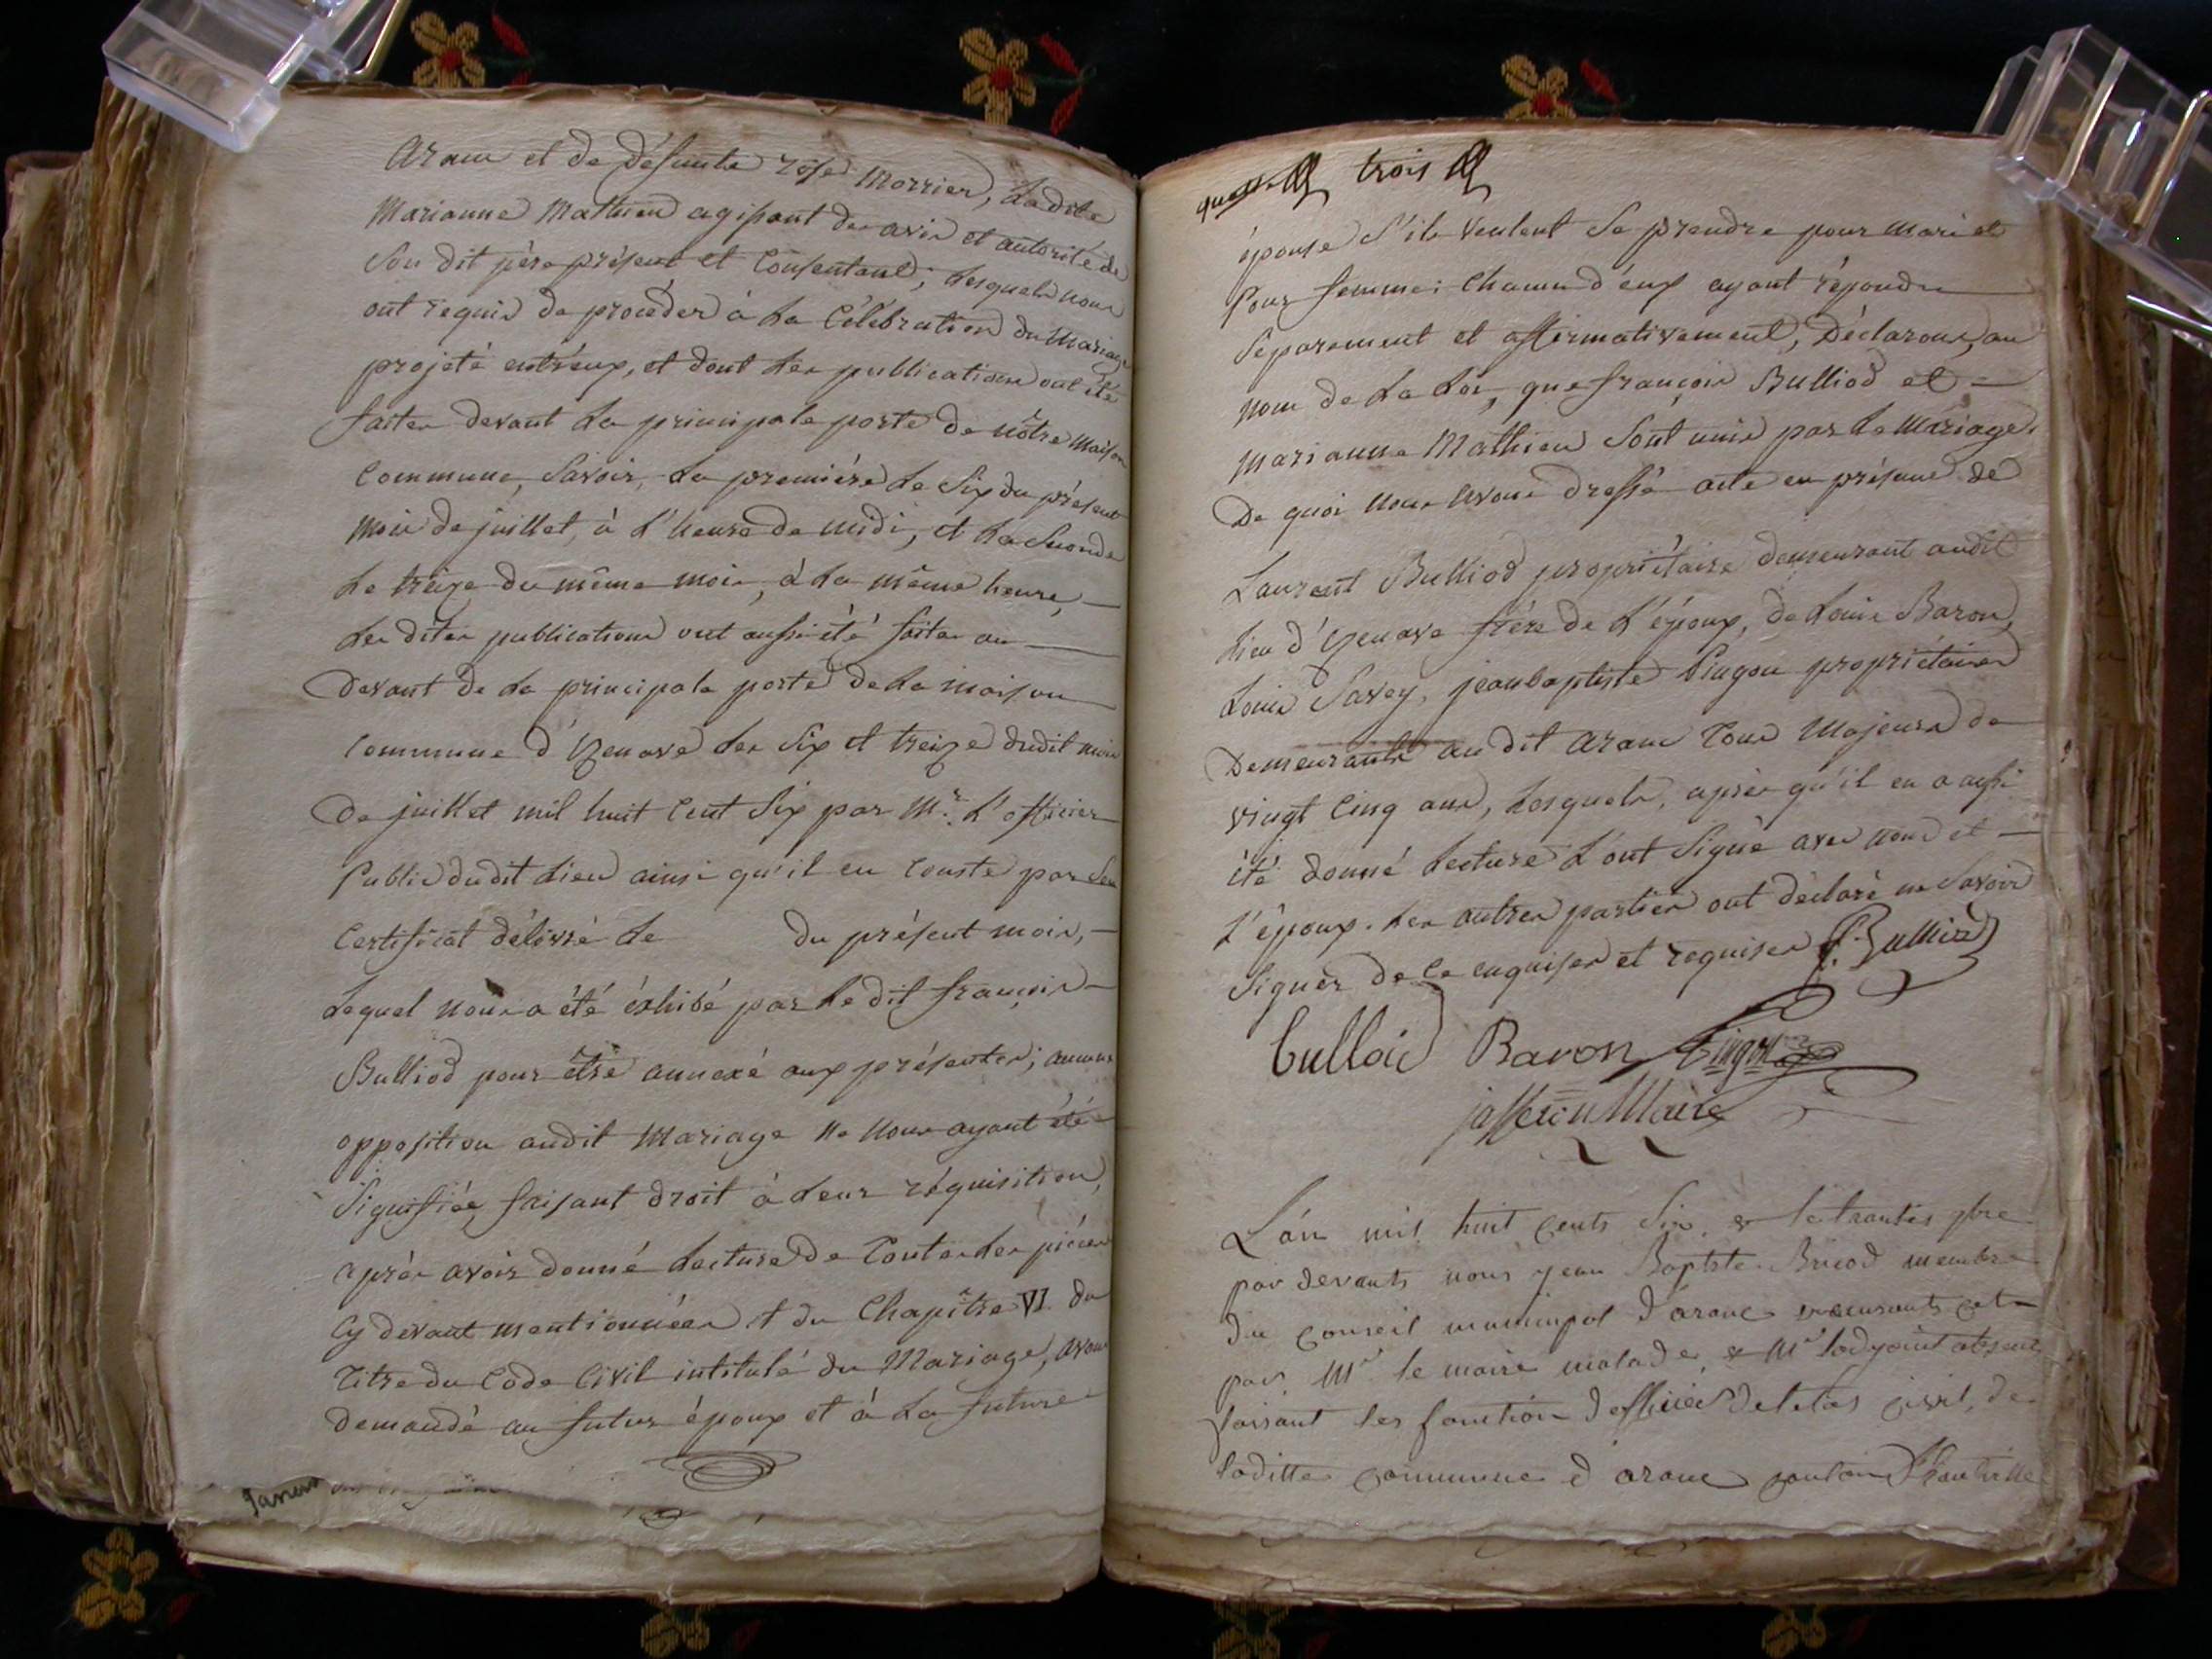 Aranc et de défunte rose Morrier, Ladite
Marianne Mathieu agissant de avis et autorité de
Son dit père présent et Consentant; Lesquels nous
ont requis de procéder à La Célébration du Mariage
projeté entr'eux, et dont Les publications ont été
faites devant La principale porte de nôtre maison
Commune, Savoir, La premiére Le Six du présent
Mois de juillet, à L'heure de midi, et La Seconde
Le treize du même mois, à La même heure,
Les dites publications ont aussi été faites au
Devant de La principale porte de La maison
Commune d'Izenave Les Six et treize dudit mois
De juillet mil huit Cent Six par Mr. L'officier
Public dudit Lieu ainsi qu'il en Conste par Son
Certificat délivré Le du présent mois,
Lequel nous a été exhibé par Le dit françois
Bulliod pour être annexé aux présentes; aucune
opposition audit Mariage ne Nous ayant été
Signifiée, faisant droit à Leur réquisition,
après avoir donné Lecture de Toutes Les pièces
Cy devant mentionnées et du Chapître VI. du
Titre du Code Civil intitulé du Mariage, avons
demandé au futur époux et à La future
trois
épouse S'ils veulent Se prendre pour Mari et
Pour femme: Chacun d'eux ayant répondu
Séparement et affirmativement, Déclarons, au
nom de La Loi, que françois Bulliod et
Marianne Mathieu Sont unis par Le Mariage.
De quoi Nous avons dressé acte en présence de
Laurent Bulliod propriétaire demeurant audit
Lieu d'Izenave frére de L'époux, de Louis Baron,
Louis Savey, jeanbaptiste Pingon propriétaires
Demeurants au dit Aranc Tous Majeurs de
vingt Cinq ans, Lesquels, après qu'il en a aussi
été donné Lecture L'ont Signé avec nous et
L'époux. Les autres parties ont déclaré ne Savoir
Signer de Ce enquises et requises f. Bulliod
bulloid Baron Pingon
jafferion Maire
L'an mil huit cents Six & le trantes 9bre
par devants nous jean Baptiste Bricod membre
du Conseil municipal d'aranc
par Mr le maire malade, & Mr ladjoint absent
faisant les fonction d'officier deletat civil de
laditte commune d'aranc canton d'hauteville